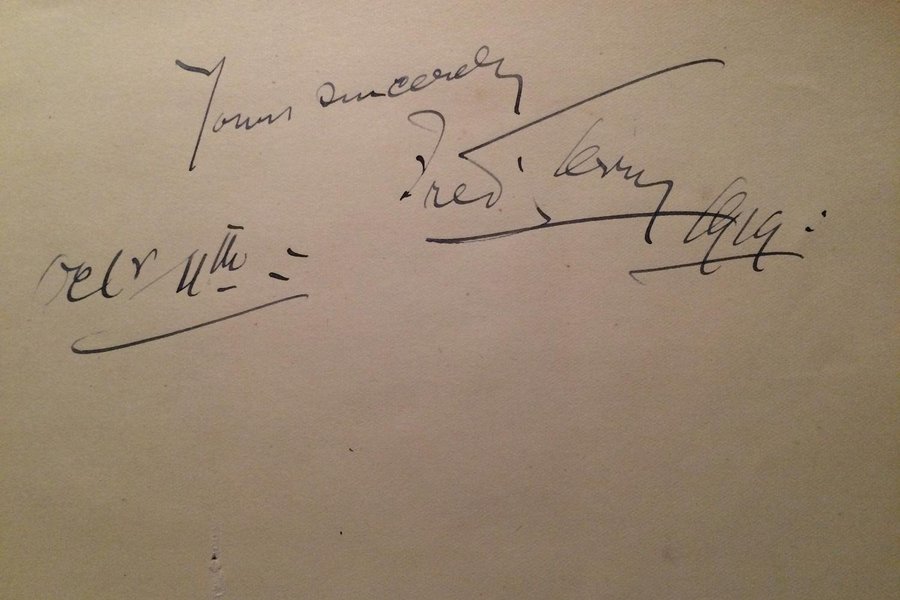 Yours sincerely
Fred Terry 1919:
Octr 11th :